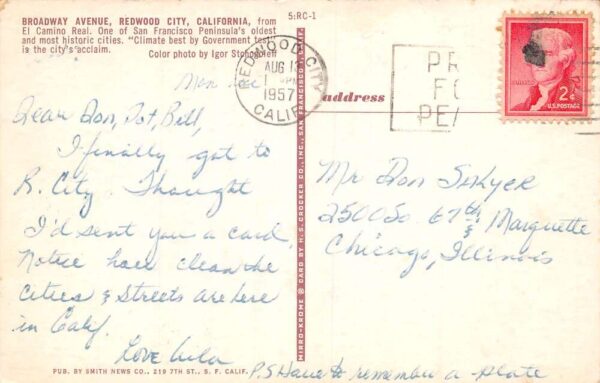 BROADWAY AVENUE, REDWOOD CITY, CALIFORNIA, from
El Camino Real. One of San Francisco Peninsula's oldest
and most historic cities. "Climate best by Government test"
is the city's acclaim.
Color photo by Igor
5:RC-1
Mon
Dear Don, Dot, Bill,
I finally got to
R. City. Thought
I'd sent you a card.
Notice how clean the
Cities & Streets are here
in Calif.
Love Lula
P.S Have to remember a plate
PUB. BY SMITH NEWS CO., 219 7TH ST., S. F. CALIF.
MIRRO-KROME ® CARD BY H. S. CROCKER CO., INC., SAN FRANCISCO 1, CALIF.
REDWOOD CITY
AUG
1957
CALIF.
PR
FO
PEA
address
2¢
U.S. POSTAGE
Mr Don
2500 So 67th &
Marquette
Chicago, Illinois